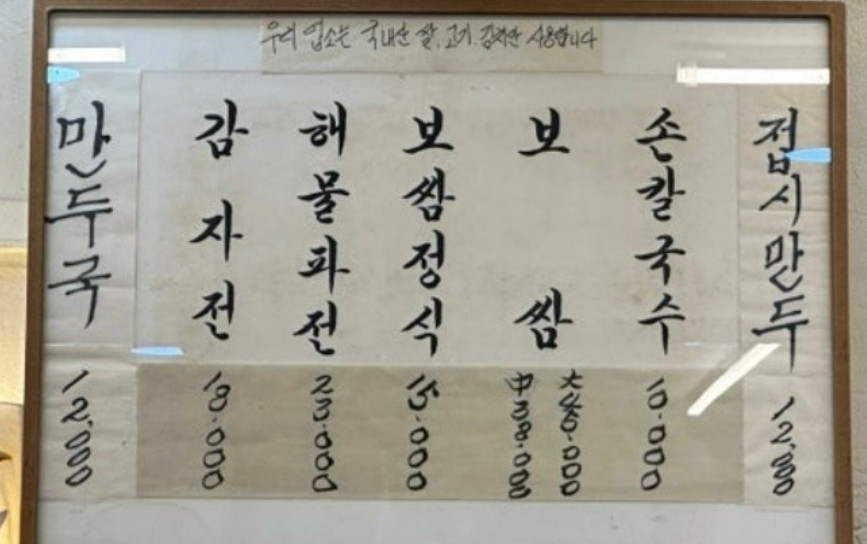 우리 업소는 국내산 쌀, 고기, 김치만 사용합니다
만두국 12,000
감자전 18.000
해물파전 23.000
보쌈정식 15.000
보쌈
中 38.000
손칼국수 10.000
접시만두 12,000